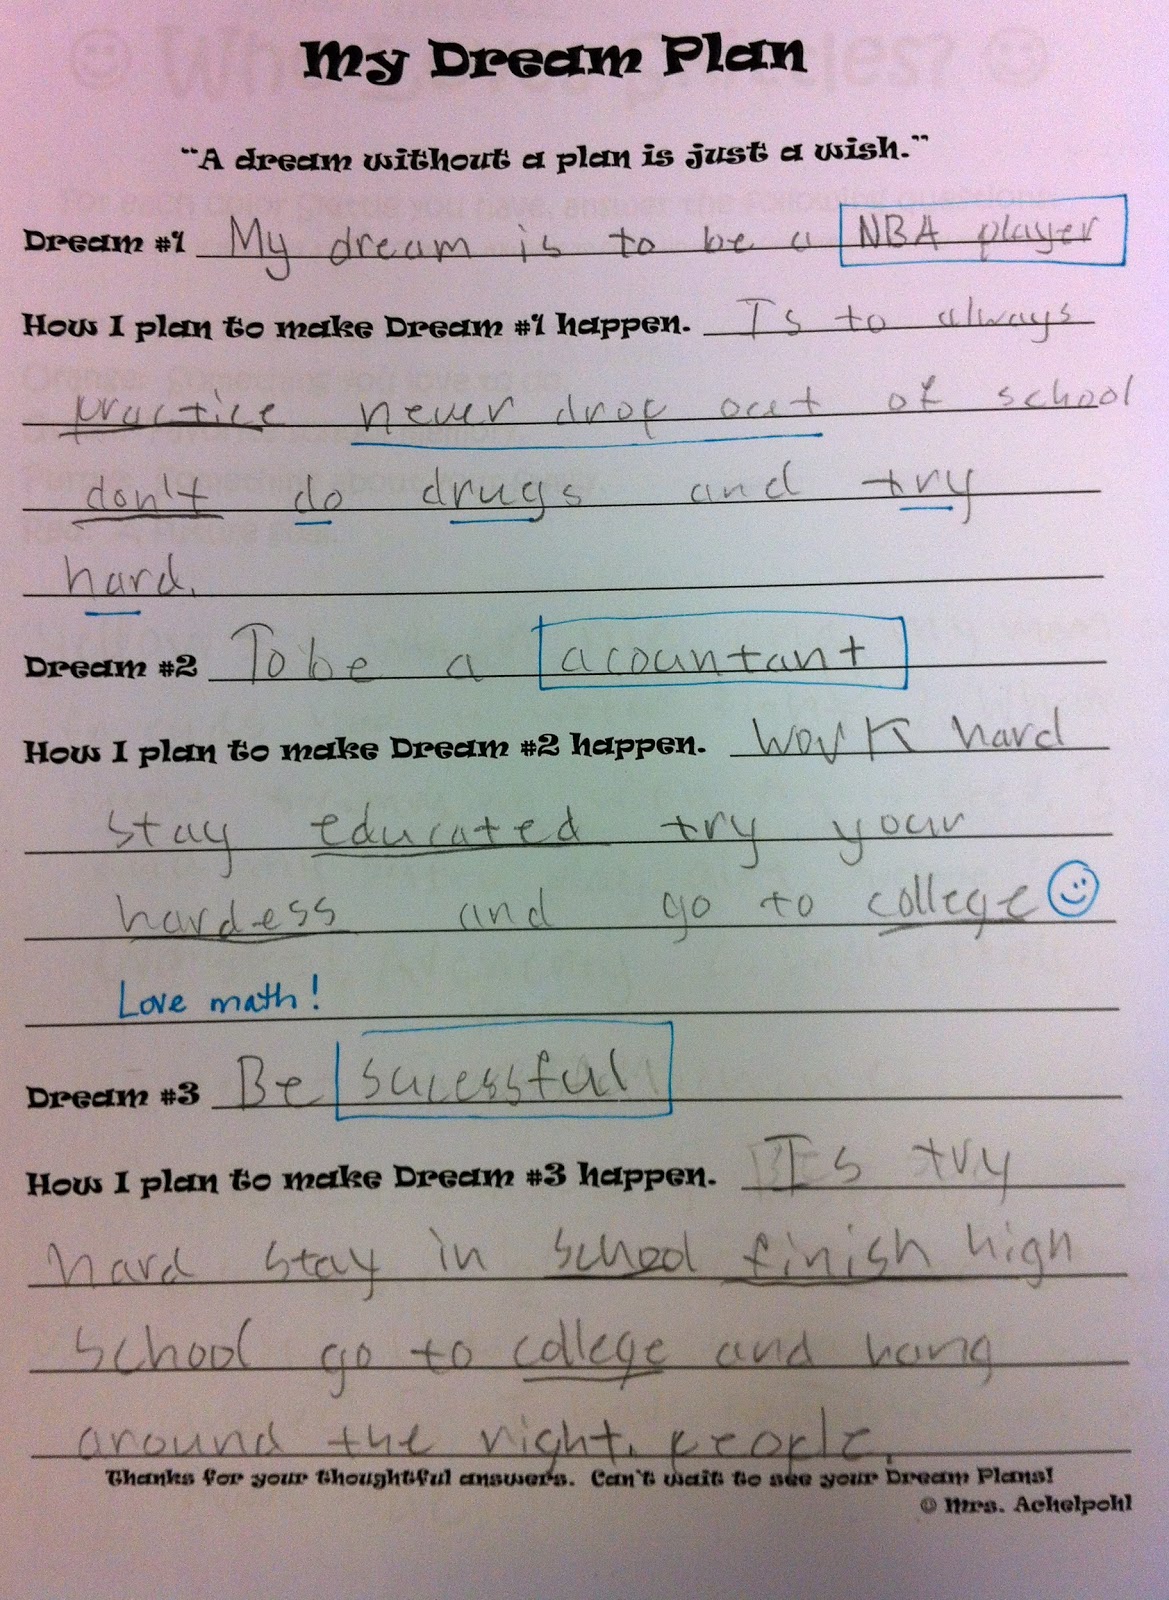 My Dream Plan
"A dream without a plan is just a wish."
Dream #1 My dream is to be a NBA player
How I plan to make Dream #1 happen. Is to always
practice never drop out of school
don't do drugs and try
hard.
Dream #2 To be a acountant
How I plan to make Dream #2 happen. Work hard
stay educated try your
hardess and go to college
Love math!
Dream #3 Be sucessful
How I plan to make Dream #3 happen. Is try
hard stay in school finish high
school go to college and hang
around the right. people.
Thanks for your thoughtful answers. Can't wait to see your Dream Plans!
☺ Mrs. Achelpohl